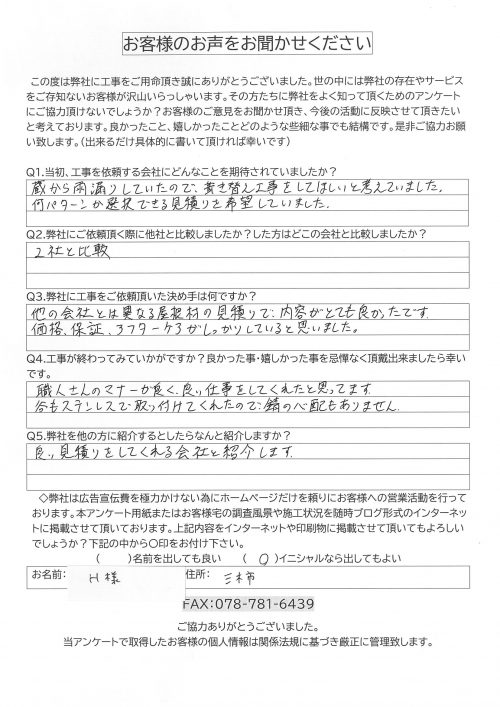 お客様のお声をお聞かせください
この度は弊社に工事をご用命頂き誠にありがとうございました。世の中には弊社の存在やサービス
をご存知ないお客様が沢山いらっしゃいます。その方たちに弊社をよく知って頂くためのアンケート
にご協力頂けないでしょうか?お客様のご意見をお聞かせ頂き、今後の活動に反映させて頂きたい
と考えております。良かったこと、嬉しかったことどのような些細な事でも結構です。是非ご協力お願
い致します。(出来るだけ具体的に書いて頂ければ幸いです)
Q1.当初、工事を依頼する会社にどんなことを期待されていましたか?
蔵から雨漏りしていたので、葺き替え工事をしてほしいと考えていました。
何パターンか選択できる見積りを希望していました。
Q2.弊社にご依頼頂く際に他社と比較しましたか?した方はどこの会社と比較しましたか?
2社と比較
Q3.弊社に工事をご依頼頂いた決め手は何ですか?
他の会社とは異なる屋根材の見積りで、内容がとても良かったです。
価格、保証、アフターケアがしっかりしていると思いました。
Q4.工事が終わってみていかがですか?良かった事・嬉しかった事を忌憚なく頂戴出来ましたら幸い
です。
職人さんのマナーが良く、良い仕事をしてくれたと思ってます。
今もステンレスで取っ付けてくれたので、錆の心配もありません。
Q5.弊社を他の方に紹介するとしたらなんと紹介しますか?
良い見積りをしてくれる会社と紹介します。
◇弊社は広告宣伝費を極力かけない為にホームページだけを頼りにお客様への営業活動を行って
おります。本アンケート用紙またはお客様宅の調査風景や施工状況を随時ブログ形式のインターネッ
トに掲載させて頂いております。上記内容をインターネットや印刷物に掲載させて頂いてもよろしい
でしょうか?下記の中から〇印をお付け下さい。
( )名前を出しても良い (〇)イニシャルなら出してもよい
お名前: H様 住所: 三木市
FAX:078-781-6439
ご協力ありがとうございました。
当アンケートで取得したお客様の個人情報は関係法規に基づき厳正に管理致します。